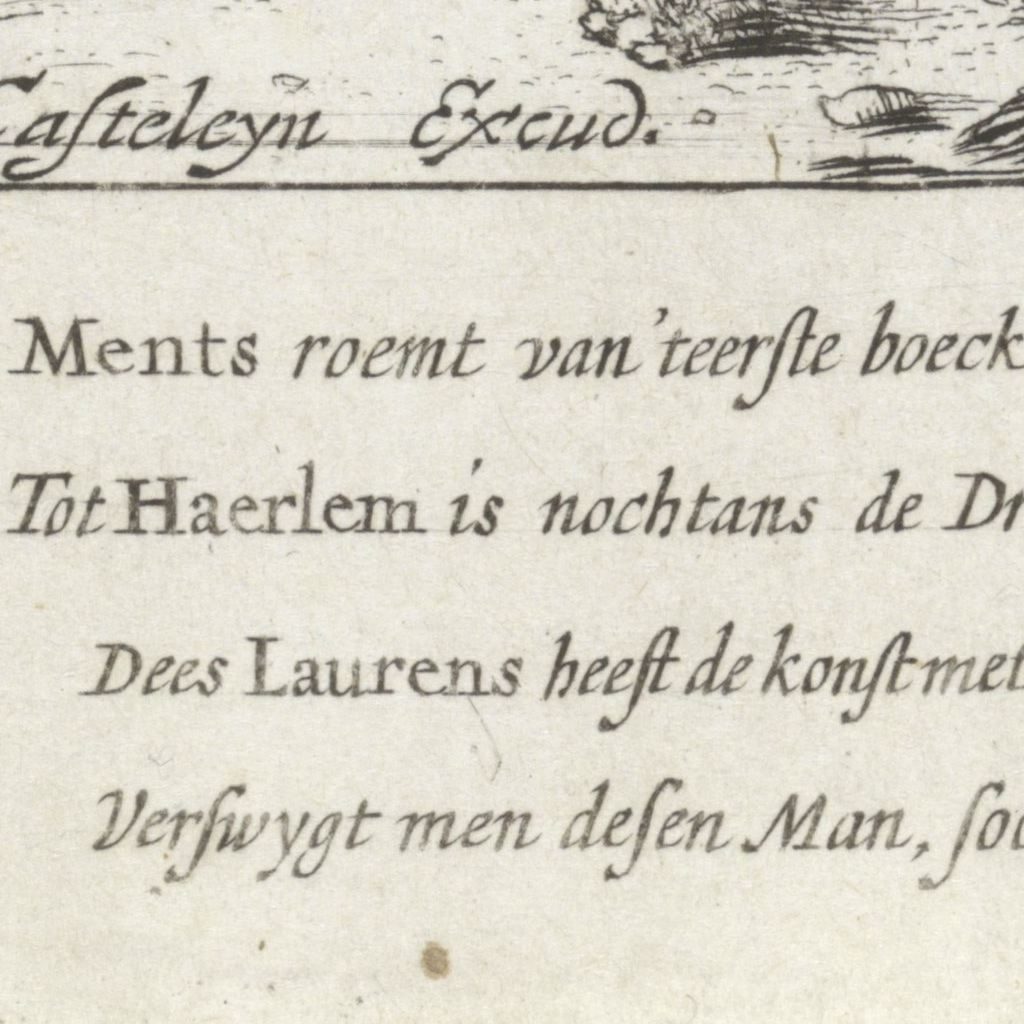 Casteleyn Excud.
Ments roemt van 'teerſte boeck
Tot Haerlem is nochtans de Dr
Dees Laurens heeft de konſt met
Verſwygt men deſen Man, ſoo